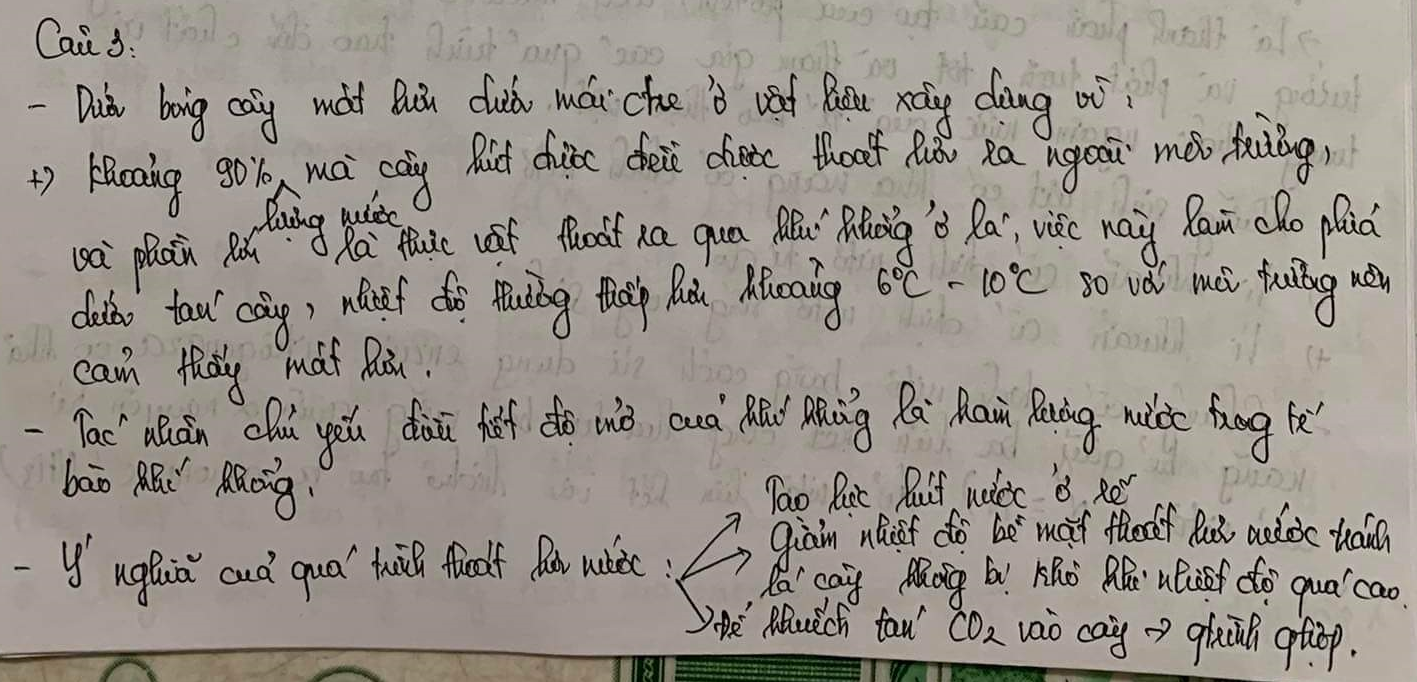 Câu 3:
- Dưới bóng cây mát hơn dưới mái che ở vật liệu xây dựng vì:
+) Khoảng 90% mà cây hút được đều được thoát hơi ra ngoài môi trường,
lượng nước
và phần lớn là thực vật thoát ra qua khí khổng ở lá, việc này làm cho phía
dưới tán cây, nhiệt độ thường thấp hơn khoảng 6°C - 10°C so với môi trường nên
cảm thấy mát hơn.
- Tác nhân chủ yếu điều tiết độ mở của khí khổng là hàm lượng nước trong tế
bào khí khổng.
- Ý nghĩa của quá trình thoát hơi nước:
Tạo lực hút nước ở rễ
Giảm nhiệt độ bề mặt thoát hơi nước tránh
lá cây không bị khô khi nhiệt độ quá cao.
Để khuếch tán CO2 vào cây → qhợp.